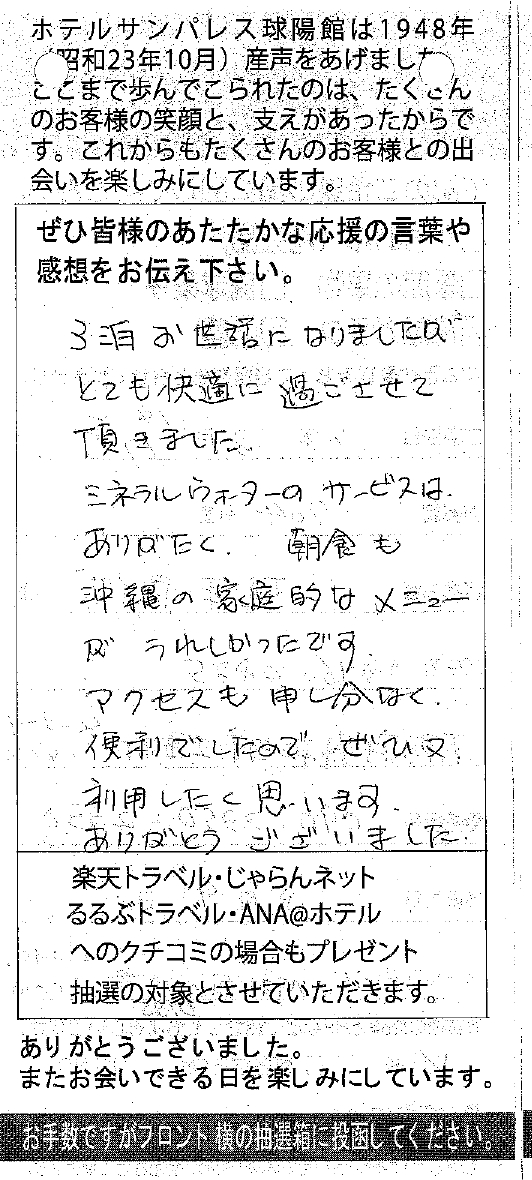 ホテルサンパレス球陽館は1948年
（昭和23年10月）産声をあげました
ここまで歩んでこられたのは、たくさん
のお客様の笑顔と、支えがあったからで
す。これからもたくさんのお客様との出
会いを楽しみにしています。
ぜひ皆様のあたたかな応援の言葉や
感想をお伝え下さい。
3泊お世話になりましたが
とても快適に過ごさせて
頂きました.
ミネラルウォーターのサービスは.
ありがたく. 朝食も
沖縄の家庭的なメニュー
が うれしかったです.
アクセスも申し分なく.
便利でしたので ぜひ又.
利用したく思います.
ありがとうございました.
楽天トラベル・じゃらんネット
るるぶトラベル・ANA@ホテル
へのクチコミの場合もプレゼント
抽選の対象とさせていただきます。
ありがとうございました。
またお会いできる日を楽しみにしています。
お手数ですがフロント横の抽選箱に投函してください。